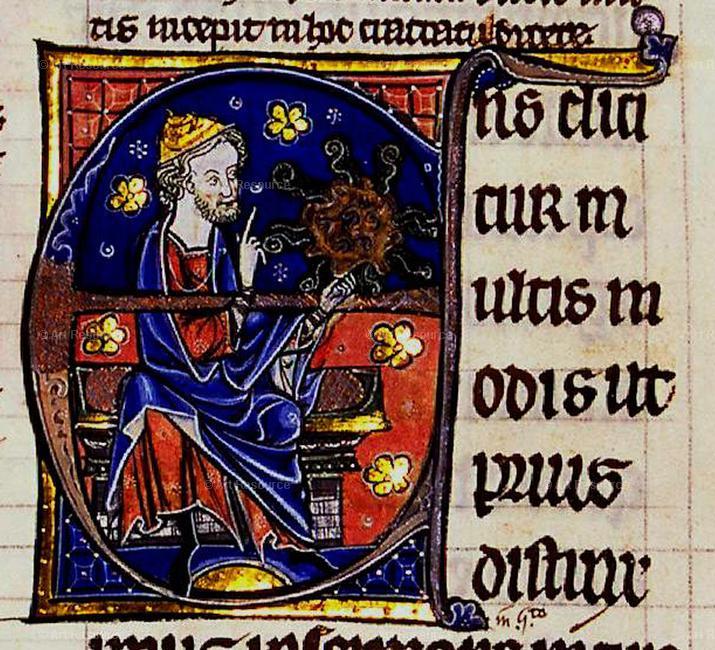 tis incepit in hoc tractatu dicere.
ns dici
tur m
ultis m
odis ut
prius
distinx
© Art Resource